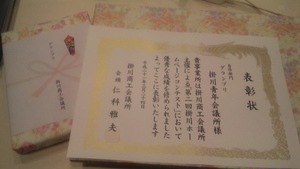 表彰状
自由部門
グランプリ
掛川青年会議所様
貴事業所は掛川商工会議所
主催による第二回掛川ホー
ムページコンテストにおいて
優秀な成績を修められました
よってここに表彰いたします
掛川商工会議所
会頭 仁科雅夫